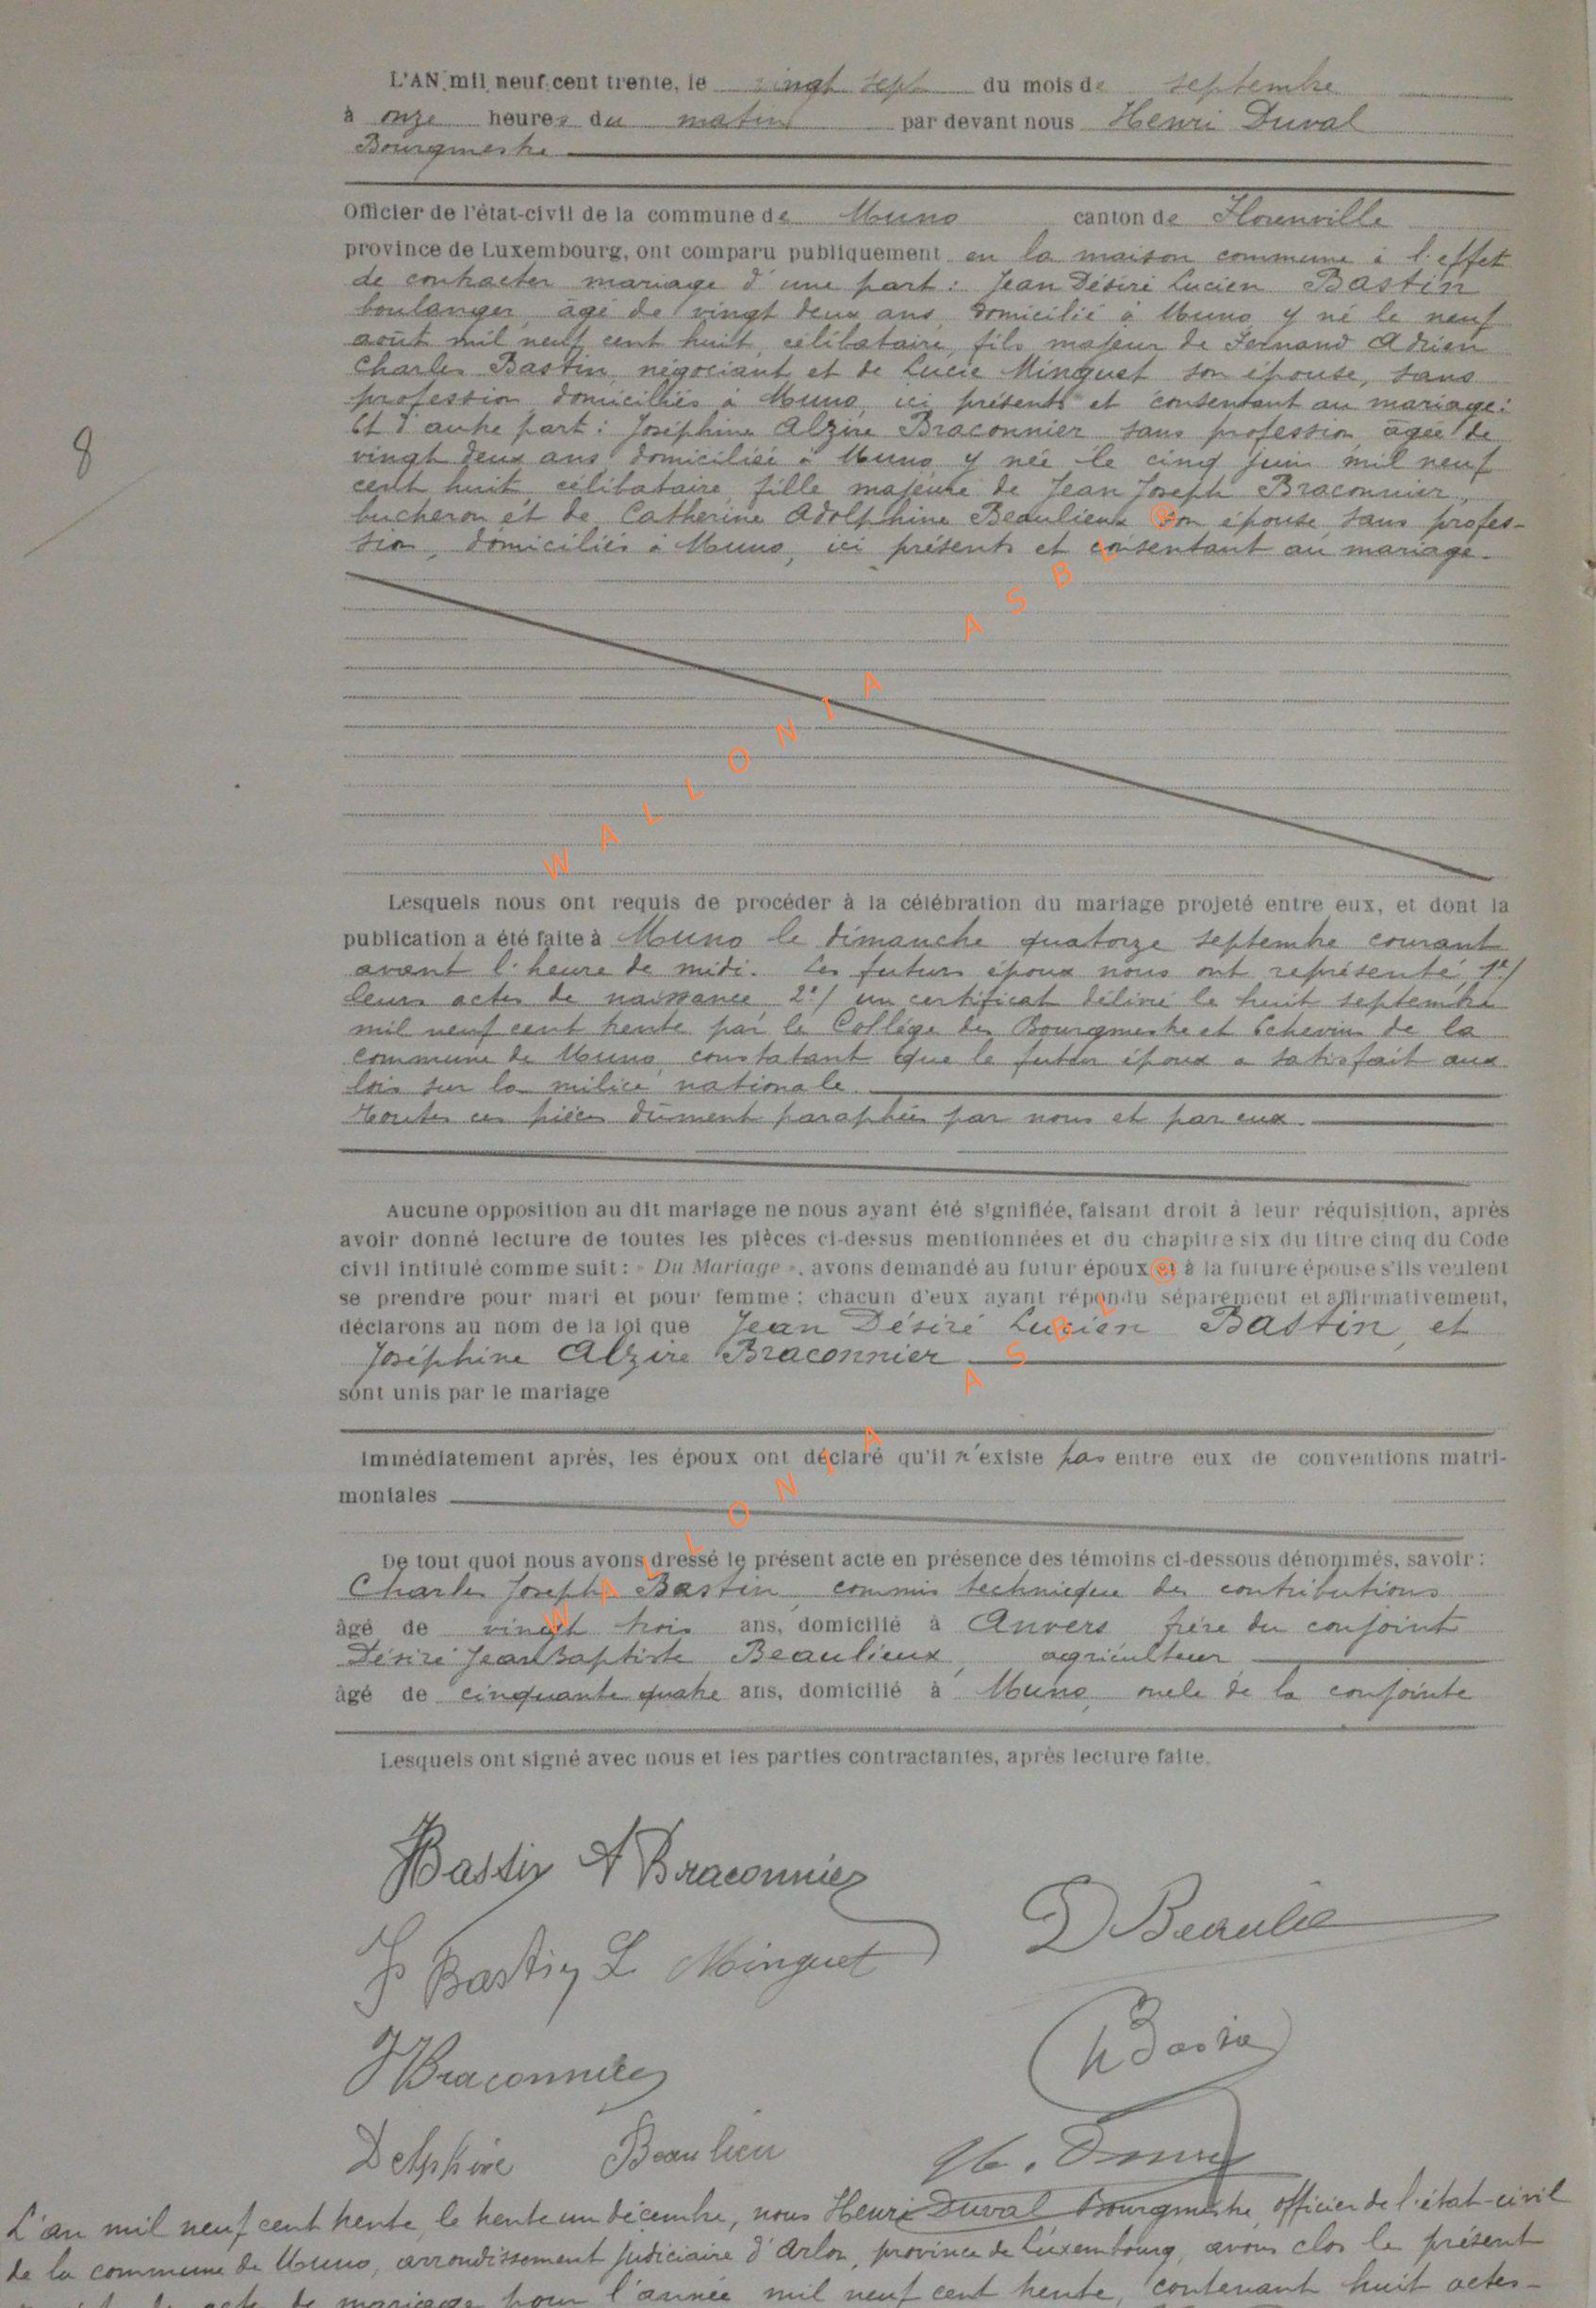 L'AN mil neuf cent trente, le vingt sept du mois de septembre
à onze heures du matin par devant nous Henri Duval
Bourgmestre
Officier de l'état-civil de la commune de Muno canton de Florenville
province de Luxembourg, ont comparu publiquement en la maison commune à l'effet
de contracter mariage d'une part : Jean Désiré Lucien Bastin
boulanger, âgé de vingt deux ans, domicilié à Muno y né le neuf
août mil neuf cent huit, célibataire, fils majeur de Fernand Adrien
Charles Bastin, négociant et de Lucie Minguet son épouse, sans
profession, domiciliés à Muno, ici présents et consentant au mariage :
Et d'autre part : Joséphine Alzire Braconnier sans profession, âgée de
vingt deux ans, domiciliée à Muno, y née le cinq juin mil neuf
cent huit, célibataire, fille majeure de Jean Joseph Braconnier,
bucheron et de Catherine Adolphine Beaulieux son épouse, sans profes-
sion, domiciliés à Muno, ici présents et consentant au mariage.
8
WALLONIA ASBL
Lesquels nous ont requis de procéder à la célébration du mariage projeté entre eux, et dont la
publication a été faite à Muno le dimanche quatorze septembre courant
avant l'heure de midi. Les futurs époux nous ont représenté, 1°/
leurs actes de naissance 2°/ un certificat délivré le huit septembre
mil neuf cent trente par le Collège des Bourgmestre et Echevins de la
commune de Muno, constatant que le futur époux a satisfait aux
lois sur la milice nationale.
Toutes ces pièces dûment paraphées par nous et par eux.
Aucune opposition au dit mariage ne nous ayant été signifiée, faisant droit à leur réquisition, après
avoir donné lecture de toutes les pièces ci-dessus mentionnées et du chapitre six du titre cinq du Code
civil intitulé comme suit : « Du Mariage », avons demandé au futur époux et à la future épouse s'ils veulent
se prendre pour mari et pour femme ; chacun d'eux ayant répondu séparément et affirmativement,
déclarons au nom de la loi que Jean Désiré Lucien Bastin, et
Joséphine Alzire Braconnier
sont unis par le mariage
WALLONIA ASBL
Immédiatement après, les époux ont déclaré qu'il n'existe pas entre eux de conventions matri-
moniales
De tout quoi nous avons dressé le présent acte en présence des témoins ci-dessous dénommés, savoir :
Charles Joseph Bastin, commis technique des contributions
âgé de vingt trois ans, domicilié à Anvers frère du conjoint
Désiré Jean Baptiste Beaulieux, agriculteur
âgé de cinquante quatre ans, domicilié à Muno, oncle de la conjointe
Lesquels ont signé avec nous et les parties contractantes, après lecture faite.
Bastin A Braconnier
D Beaulie
F Bastin L Minguet
Ch Bastin
J Braconnier
Delphine Beaulieu
H. Duval
L'an mil neuf cent trente, le trente un décembre, nous Henri Duval Bourgmestre, officier de l'état-civil
de la commune de Muno, arrondissement judiciaire d'Arlon, province de Luxembourg, avons clos le présent
de mariage pour l'année mil neuf cent trente, contenant huit actes-